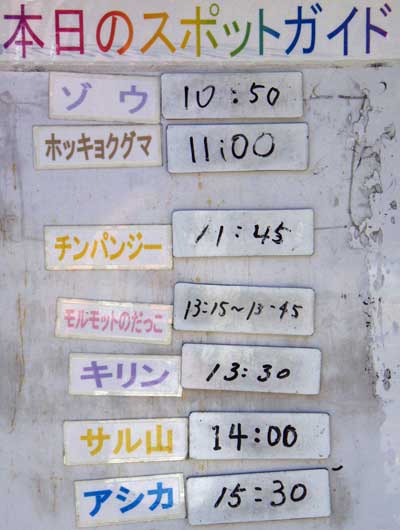 本日のスポットガイド
ゾウ 10:50
ホッキョクグマ 11:00
チンパンジー 11:45
モルモットのだっこ 13:15~13:45
キリン 13:30
サル山 14:00
アシカ 15:30